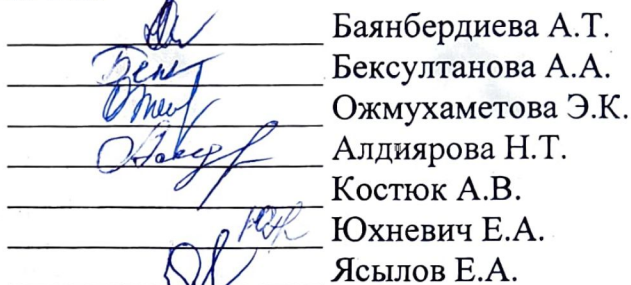 Баянбердиева А.Т.
Бексултанова А.А.
Ожмухаметова Э.К.
Алдиярова Н.Т.
Костюк А.В.
Юхневич Е.А.
Ясылов Е.А.